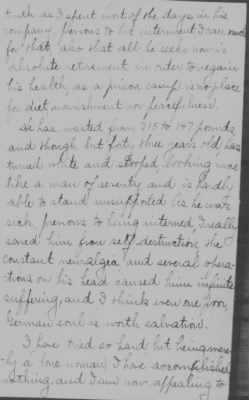 truth as I spent most of the days in his
company previous to his internment I can vouch
for that, also that all he seeks now is
absolute retirement in order to regain
his health as a prison camp is no place
for diet nourishment nor peacefulness.
He has wasted from 215 to 147 pounds
and though but forty three years old, has
turned white and stooped, looking more
like a man of seventy and is hardly
able to stand unsupported. As he was
sick previous to being interned, I really
saved him from self destruction, the
constant neuralgea and several opera-
tions on his head caused him infinite
suffering, and I think even one poor
German soul is worth salvation.
I have tried so hard but being mere-
ly a lone woman, I have accomplished
nothing, and I am now appealing to